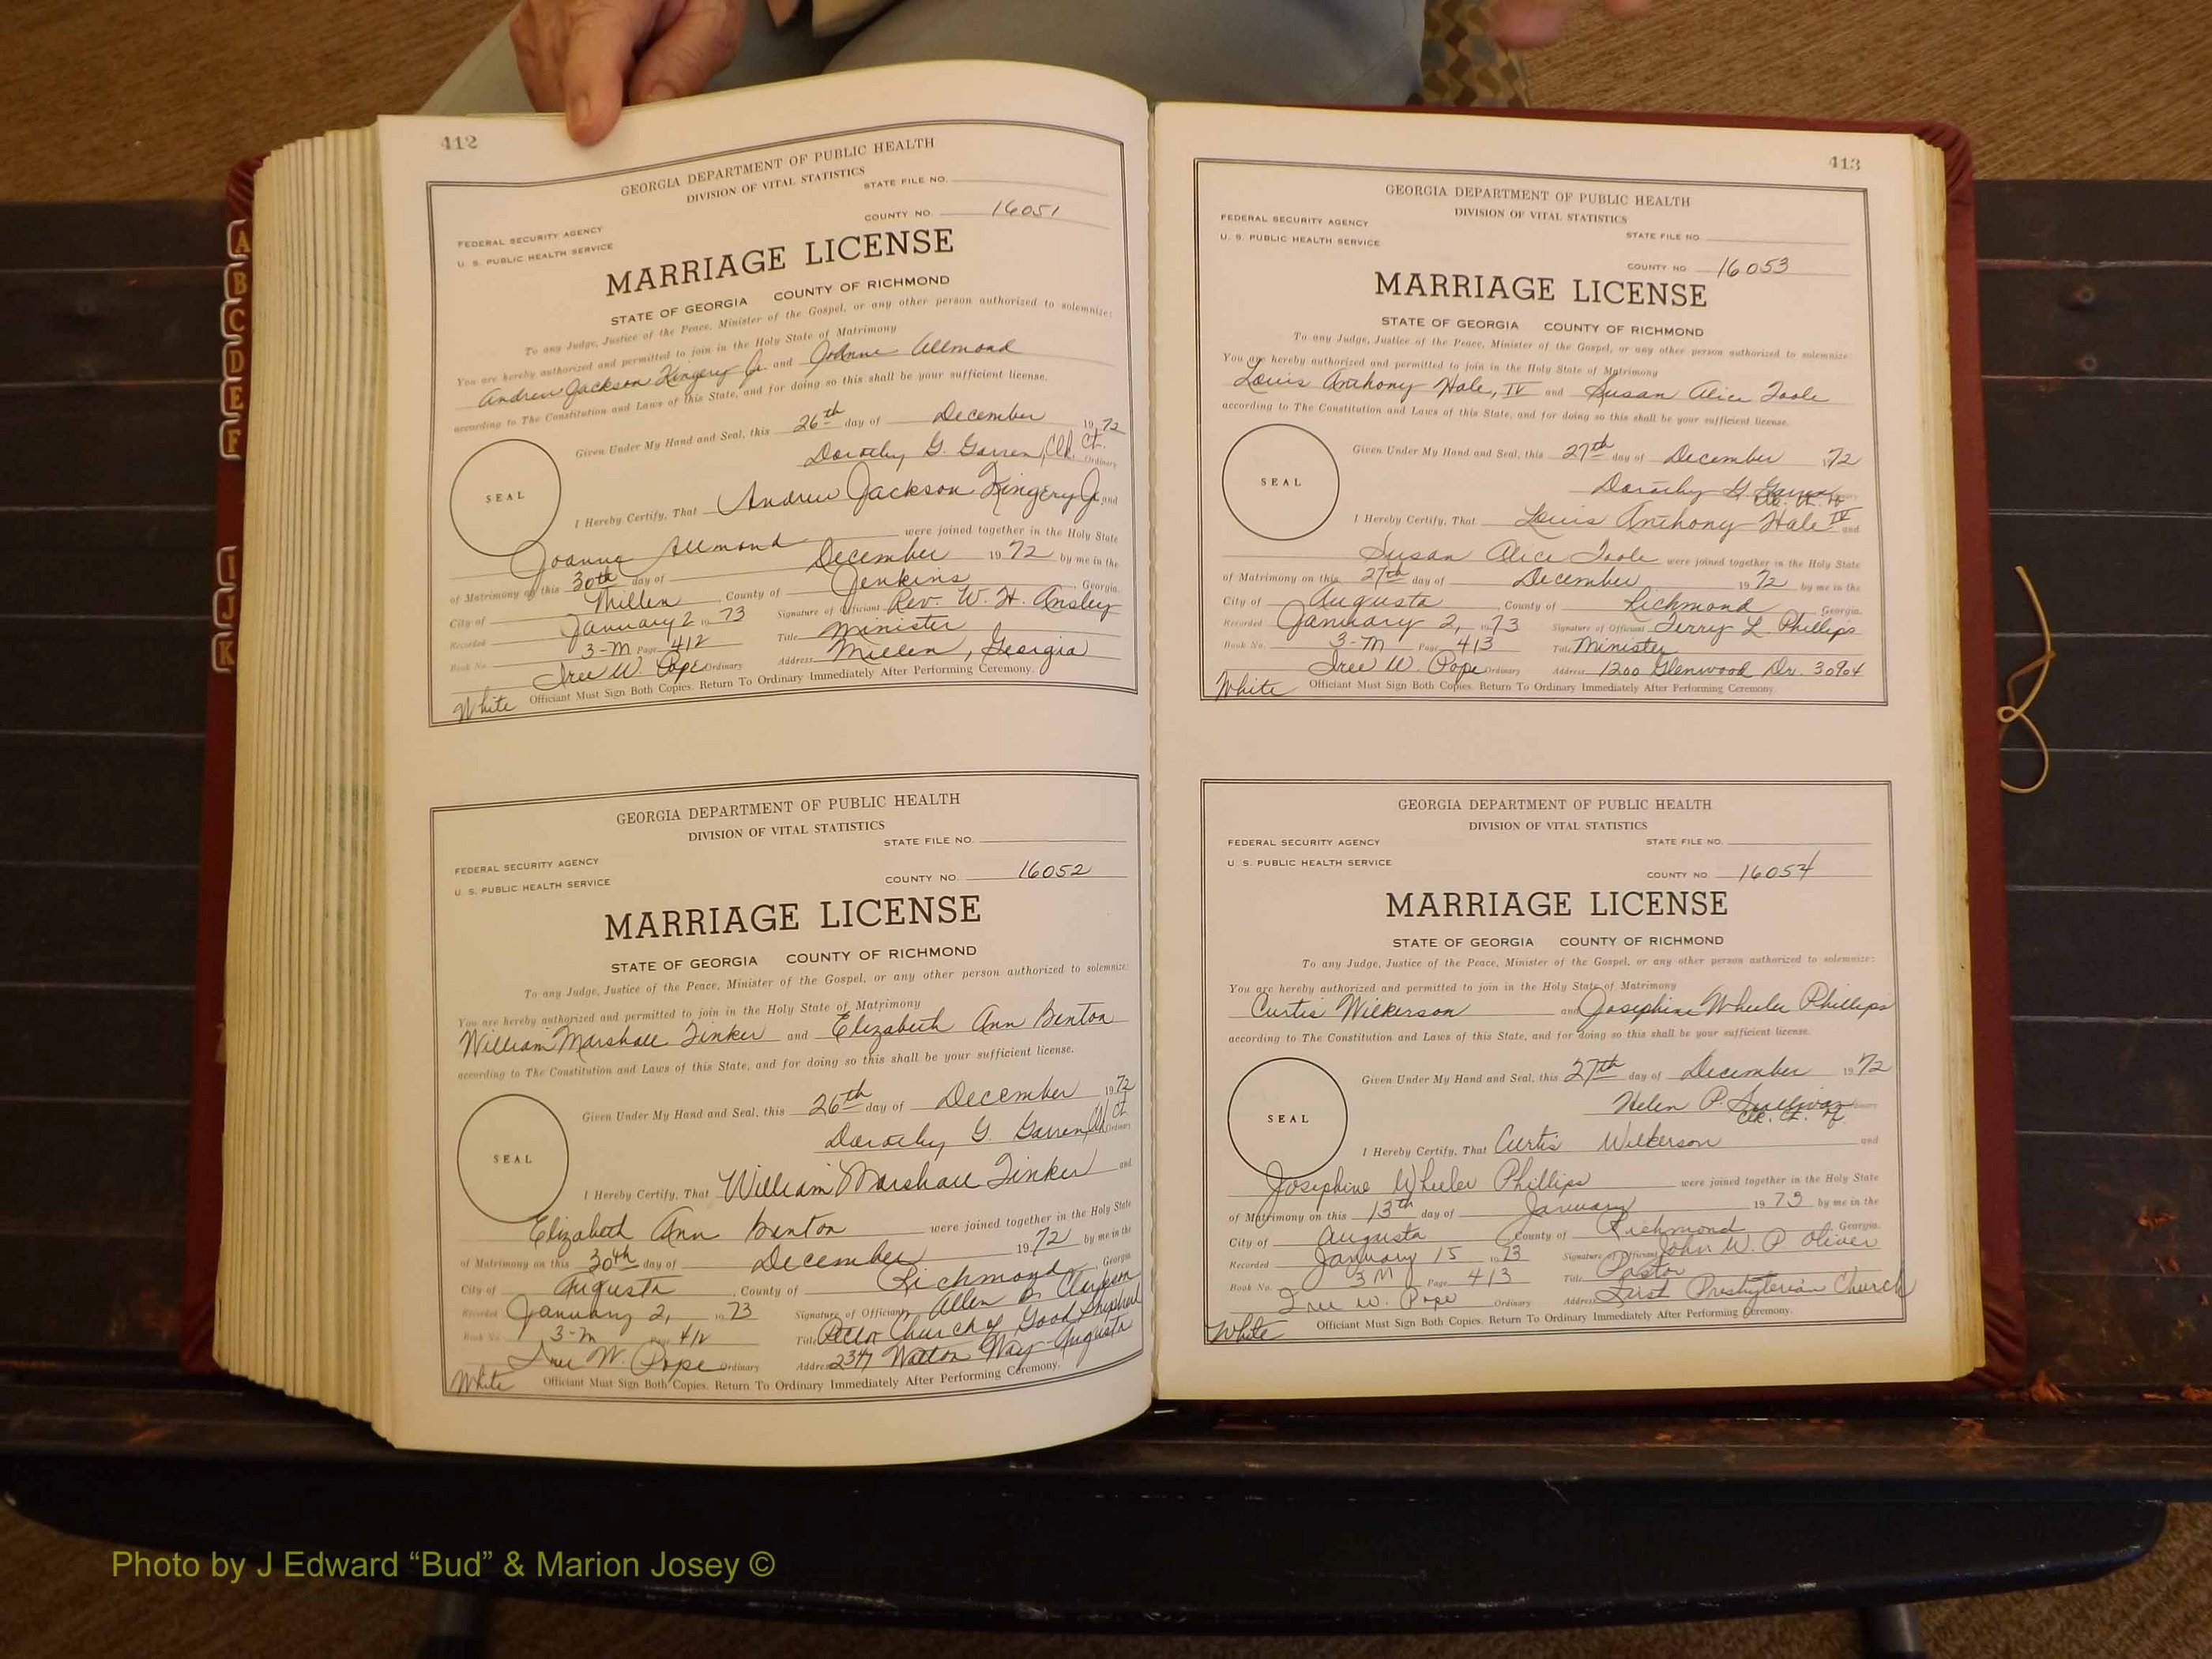 412
GEORGIA DEPARTMENT OF PUBLIC HEALTH
DIVISION OF VITAL STATISTICS
STATE FILE NO.
COUNTY NO. 16051
FEDERAL SECURITY AGENCY
U. S. PUBLIC HEALTH SERVICE
MARRIAGE LICENSE
STATE OF GEORGIA COUNTY OF RICHMOND
To any Judge, Justice of the Peace, Minister of the Gospel, or any other person authorized to solemnize:
You are hereby authorized and permitted to join in the Holy State of Matrimony
Andrew Jackson Kingery Jr. and JoAnne Allmond
according to The Constitution and Laws of this State, and for doing so this shall be your sufficient license.
Given Under My Hand and Seal, this 26th day of December 1972
Dorothy G. Garren, Clk. Ct. Ordinary
SEAL
I Hereby Certify, That Andrew Jackson Kingery Jr. and
Joanne Allmond were joined together in the Holy State
of Matrimony on this 30th day of December 1972 by me in the
City of Millen County of Jenkins, Georgia.
Recorded January 2 1973 Signature of Officiant Rev. W. H. Ansley
Book No. 3-M Page 412 Title Minister
Iree W. Pope Ordinary Address Millen, Georgia
White Officiant Must Sign Both Copies. Return To Ordinary Immediately After Performing Ceremony.
GEORGIA DEPARTMENT OF PUBLIC HEALTH
DIVISION OF VITAL STATISTICS
STATE FILE NO.
FEDERAL SECURITY AGENCY
U. S. PUBLIC HEALTH SERVICE
COUNTY NO. 16052
MARRIAGE LICENSE
STATE OF GEORGIA COUNTY OF RICHMOND
To any Judge, Justice of the Peace, Minister of the Gospel, or any other person authorized to solemnize:
You are hereby authorized and permitted to join in the Holy State of Matrimony
William Marshall Tinker and Elizabeth Ann Benton
according to The Constitution and Laws of this State, and for doing so this shall be your sufficient license.
Given Under My Hand and Seal, this 26th day of December 1972
Dorothy G. Garren, Clk Ct Ordinary
SEAL
I Hereby Certify, That William Marshall Tinker and
Elizabeth Ann Benton were joined together in the Holy State
of Matrimony on this 30th day of December 1972 by me in the
City of Augusta, County of Richmond, Georgia
Recorded January 2, 1973 Signature of Officiant Allen B. Clarkson
Book No. 3-M Page 412 Title Church of Good Shepherd
Iree W. Pope Ordinary Address 2347 Walton Way-Augusta
White Officiant Must Sign Both Copies. Return To Ordinary Immediately After Performing Ceremony.
413
GEORGIA DEPARTMENT OF PUBLIC HEALTH
DIVISION OF VITAL STATISTICS
FEDERAL SECURITY AGENCY
U. S. PUBLIC HEALTH SERVICE
STATE FILE NO
COUNTY NO. 16053
MARRIAGE LICENSE
STATE OF GEORGIA COUNTY OF RICHMOND
To any Judge, Justice of the Peace, Minister of the Gospel, or any other person authorized to solemnize:
You are hereby authorized and permitted to join in the Holy State of Matrimony
Louis Anthony Hale, IV and Susan Alice Toole
according to The Constitution and Laws of this State, and for doing so this shall be your sufficient license.
Given Under My Hand and Seal, this 27th day of December 1972
Dorothy G. Garren
SEAL
I Hereby Certify, That Louis Anthony Hale IV and
Susan Alice Toole were joined together in the Holy State
of Matrimony on this 27th day of December, 1972 by me in the
City of Augusta, County of Richmond, Georgia.
Recorded January 2, 1973 Signature of Officiant Terry L. Phillips
Book No. 3-M Page 413 Title Minister
Iree W. Pope Ordinary Address 1200 Glenwood Dr. 30904
White Officiant Must Sign Both Copies. Return To Ordinary Immediately After Performing Ceremony.
GEORGIA DEPARTMENT OF PUBLIC HEALTH
DIVISION OF VITAL STATISTICS
FEDERAL SECURITY AGENCY
STATE FILE NO.
U. S. PUBLIC HEALTH SERVICE
COUNTY NO. 16054
MARRIAGE LICENSE
STATE OF GEORGIA COUNTY OF RICHMOND
To any Judge, Justice of the Peace, Minister of the Gospel, or any other person authorized to solemnize:
You are hereby authorized and permitted to join in the Holy State of Matrimony
Curtis Wilkerson and Josephine Wheeler Phillips
according to The Constitution and Laws of this State, and for doing so this shall be your sufficient license.
Given Under My Hand and Seal, this 27th day of December 1972
Helen P. Sullivan Clk. Ct.
SEAL
I Hereby Certify, That Curtis Wilkerson and
Josephine Wheeler Phillips were joined together in the Holy State
of Matrimony on this 13th day of January 1973 by me in the
City of Augusta County of Richmond, Georgia.
Recorded January 15 1973 Signature of Officiant John W. P Oliver
Book No. 3M Page 413 Title Pastor
Iree W. Pope Ordinary Address First Presbyterian Church
White Officiant Must Sign Both Copies. Return To Ordinary Immediately After Performing Ceremony.
A
B
C
D
E
F
I
J
K
Photo by J Edward “Bud” & Marion Josey ©